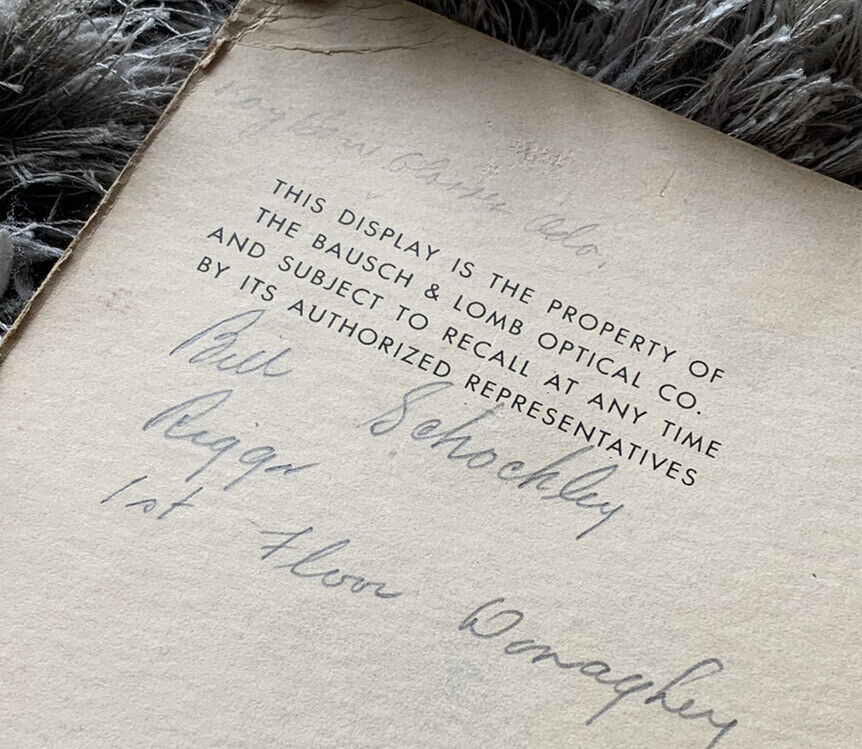 THIS DISPLAY IS THE PROPERTY OF
THE BAUSCH & LOMB OPTICAL CO.
AND SUBJECT TO RECALL AT ANY TIME
BY ITS AUTHORIZED REPRESENTATIVES
Bill Schockley
1st Floor Donaghey